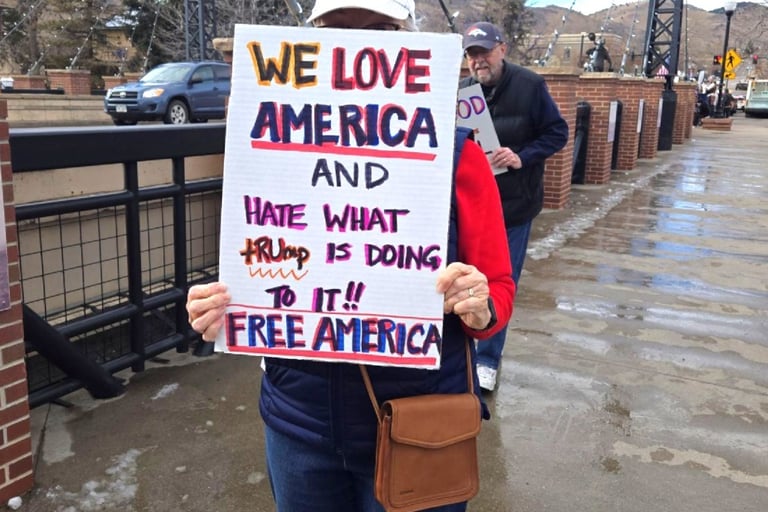 WE LOVE
AMERICA
AND
HATE WHAT
tRUmp IS DOING
TO IT!!
FREE AMERICA
OD